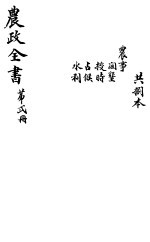 共捌本
農事
開墾
授時
占候
水利
農政全書 苐弍冊